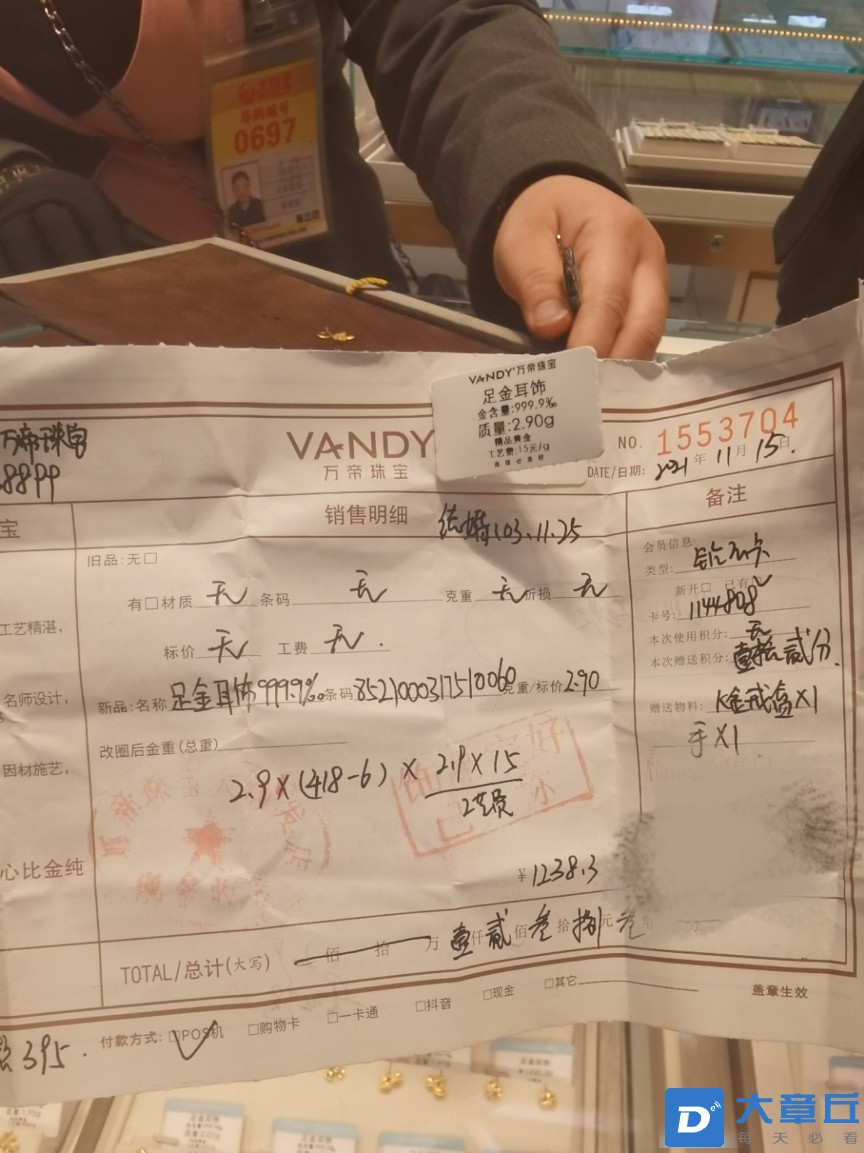 0697
VANDY 万帝珠宝
足金耳饰
金含量:999.9‰
质量:2.90g
精品黄金
工艺费:15元/g
万帝珠宝
VANDY
万帝珠宝
NO. 1553704
DATE/日期: 2021年 11月 15日
宝
销售明细
备注
旧品:无□
有□材质 无 条码 无 克重 无 折损 无
标价 无 工费 无.
新品:名称 足金耳饰999.9‰ 条码 8521000317510060 克重/标价 2.90
改圈后金重(总重)
2.9×(418-6)×
2.9×15
¥1238.3
会员信息
类型:
新开□ 已有
卡号: 1144808
本次使用积分: 无
本次赠送积分: 壹拾贰分.
赠送物料: K金戒盒×1
手×1
工艺精湛,
名师设计,
因材施艺,
心比金纯
TOTAL/总计(大写) 佰 拾 万 壹仟 贰佰 叁拾 捌元 叁角 分
付款方式: □POS机 □购物卡 □一卡通 □抖音 □现金 □其它
盖章生效
395.
大章丘
每天必看